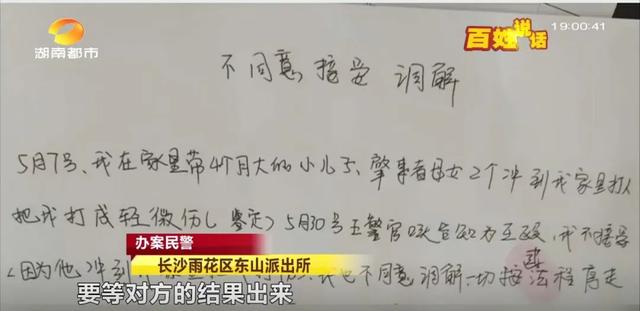 湖南都市
百姓说话
19:00:41
不同意接受调解
5月7号、我在家里带4个月大的小儿子、肇事者母女2个冲到我家里打人
把我打成轻微伤(鉴定)5月30号王警官 告知为互殴,我不接受
(因为他)冲到 也不同意调解.一切按法程序走
办案民警
长沙雨花区东山派出所
要等对方的结果出来